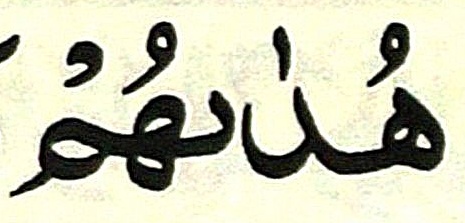 هُدٰىهُمْ